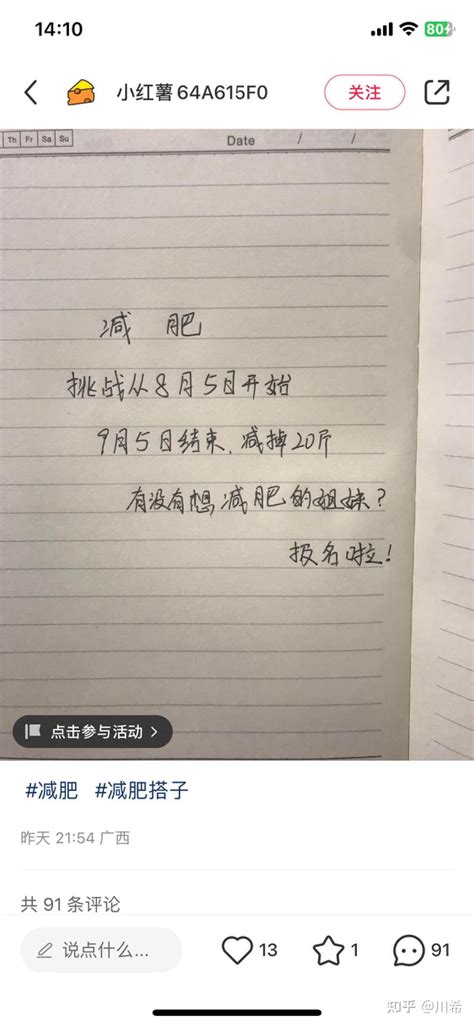 14:10
80
小红薯64A615F0
关注
Th Fr Sa Su
Date / /
减 肥
挑战从8月5日开始
9月5日结束.减掉20斤
有没有想减肥的姐妹？
报名啦！
点击参与活动
#减肥 #减肥搭子
昨天 21:54 广西
共 91 条评论
说点什么...
13
1
91
知乎 @川希